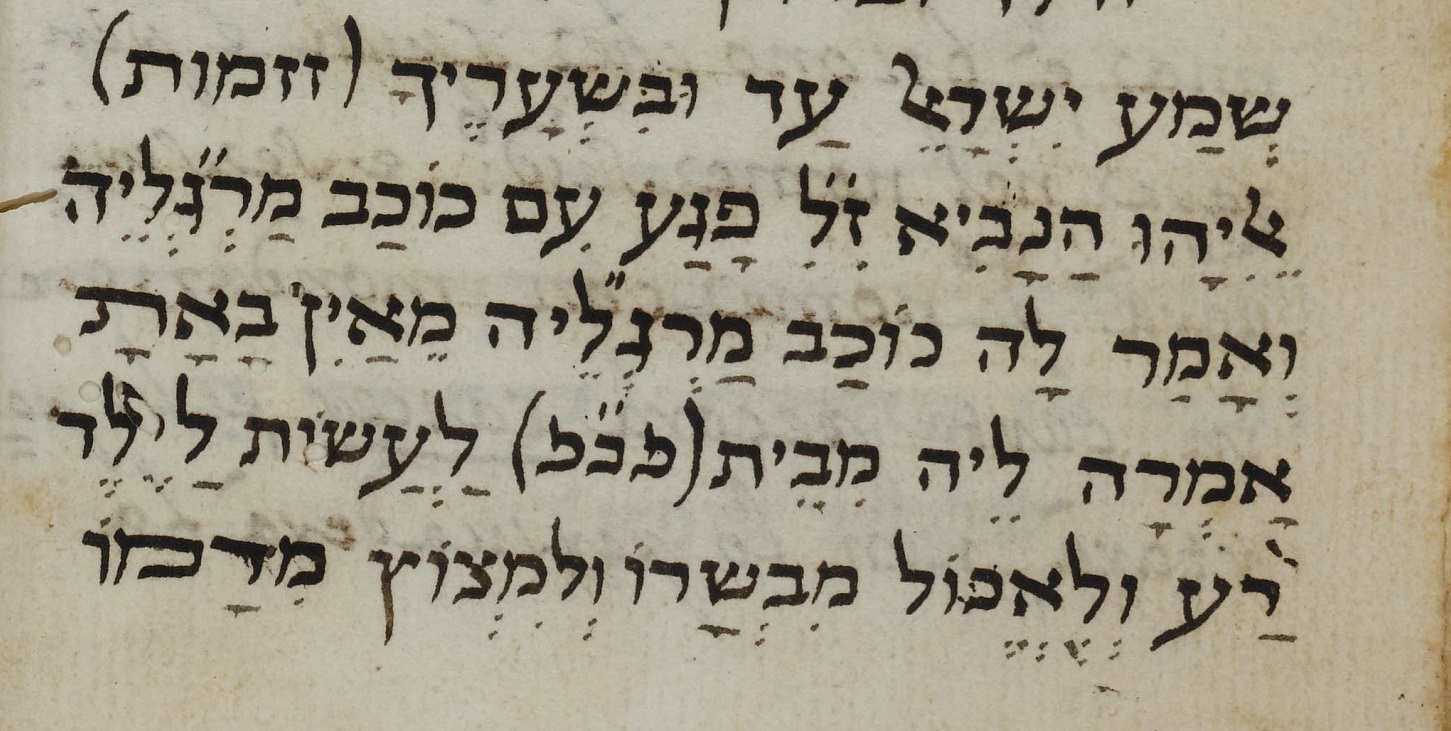 שְׁמַע יִשְׂרָאֵל עַד וּבִשְׁעָרֶיךָ (זזמות)
אֵלִיָהוּ הַנָבִיא זִ״לִ פָּגַע עִם כּוֹכַב מַרְגְ״לֵיה
וְאָמַר לָה כּוֹכַב מַרְגְ״לֵיה מֵאַיִן בָּאָתָ
אָמְרָה לֵיה מִבֵּית (בב״ב) לַעֲשׂוֹת לַיֶלֶד
רַע וְלֶאֱכוֹל מִבְּשָׂרוֹ וְלִמְצוֹץ מִדָמוֹ